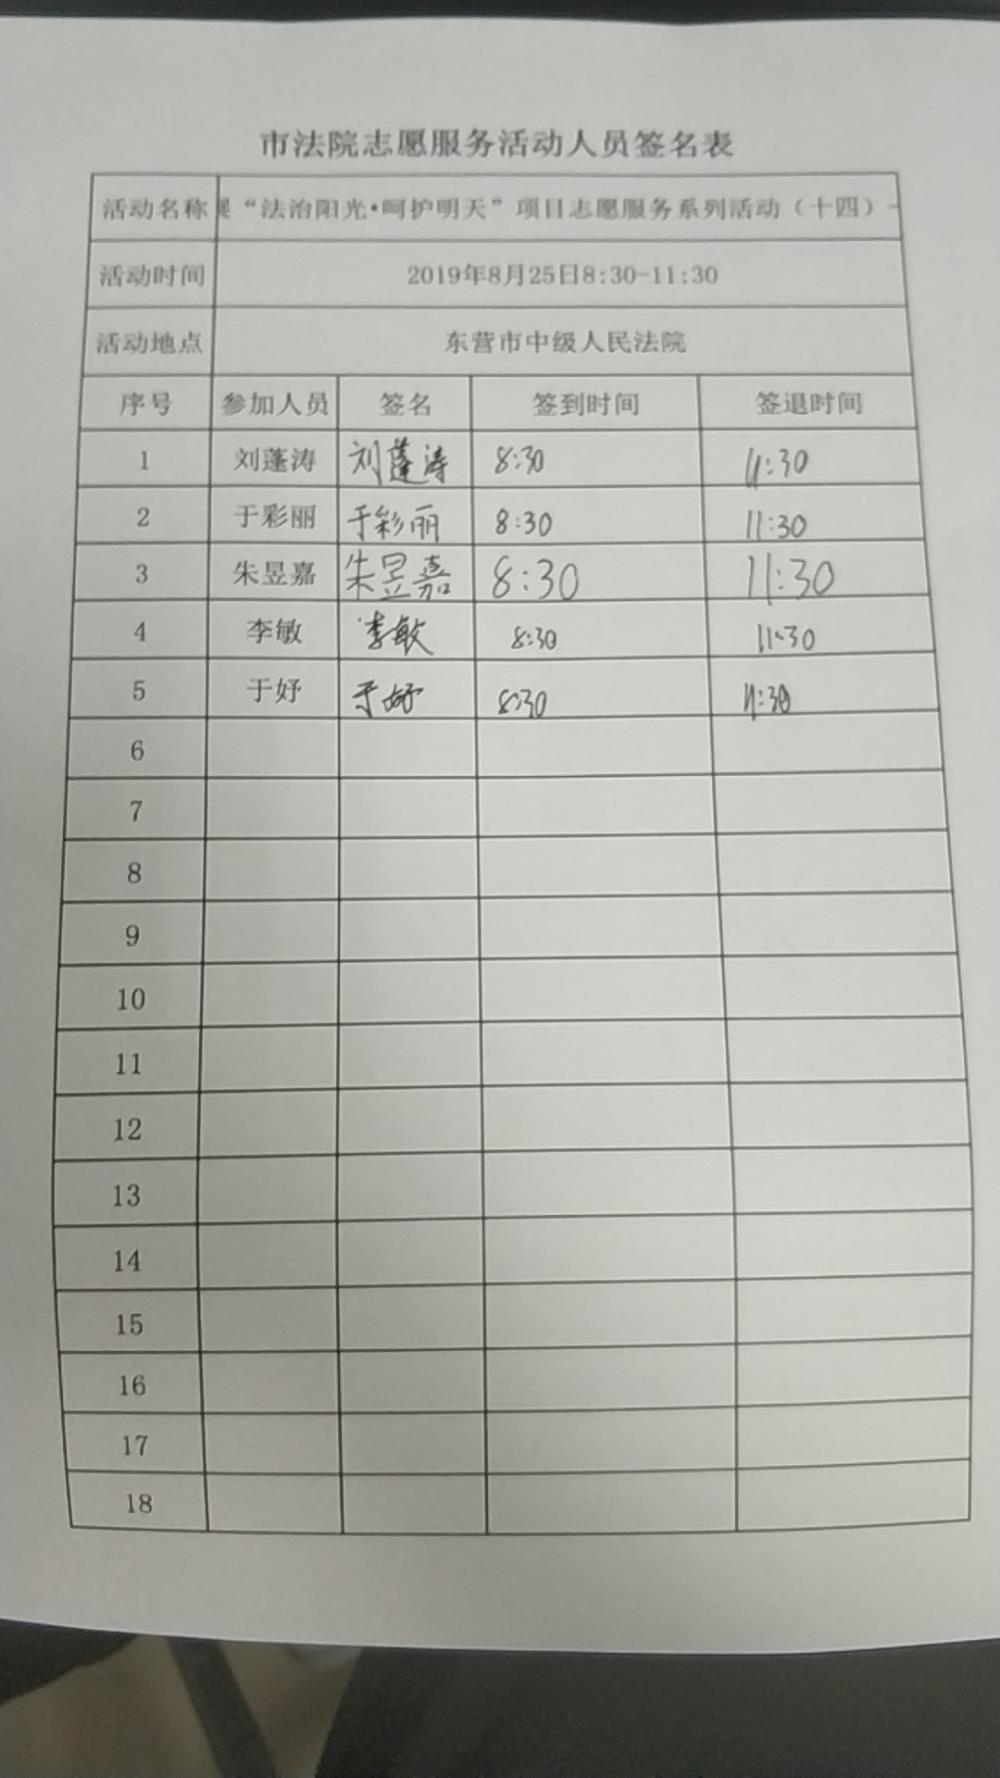 市法院志愿服务活动人员签名表
活动名称 “法治阳光•呵护明天”项目志愿服务系列活动（十四）
活动时间 2019年8月25日8:30-11:30
活动地点 东营市中级人民法院
序号 参加人员 签名 签到时间 签退时间
1 刘蓬涛 刘蓬涛 8:30 11:30
2 于彩丽 于彩丽 8:30 11:30
3 朱昱嘉 朱昱嘉 8:30 11:30
4 李敏 李敏 8:30 11:30
5 于妤 于妤 8:30 11:30
6
7
8
9
10
11
12
13
14
15
16
17
18